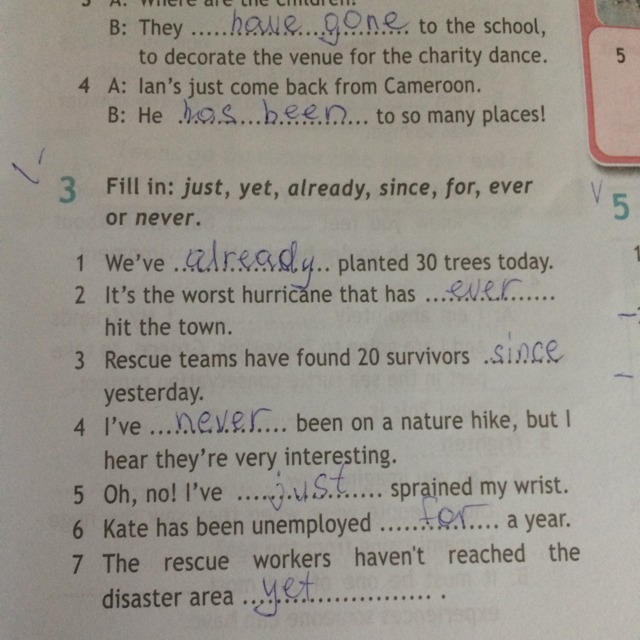 3 A: Where are the children?
B: They .....have...gone.. to the school,
to decorate the venue for the charity dance.
4 A: Ian's just come back from Cameroon.
B: He .has...been.... to so many places!
5
3 Fill in: just, yet, already, since, for, ever
or never.
5
1 We've ..already.. planted 30 trees today.
2 It's the worst hurricane that has ....ever......
hit the town.
3 Rescue teams have found 20 survivors .since
yesterday.
4 I've ...never.... been on a nature hike, but I
hear they're very interesting.
5 Oh, no! I've .....just..... sprained my wrist.
6 Kate has been unemployed .....for.... a year.
7 The rescue workers haven't reached the
disaster area ...yet.................. .